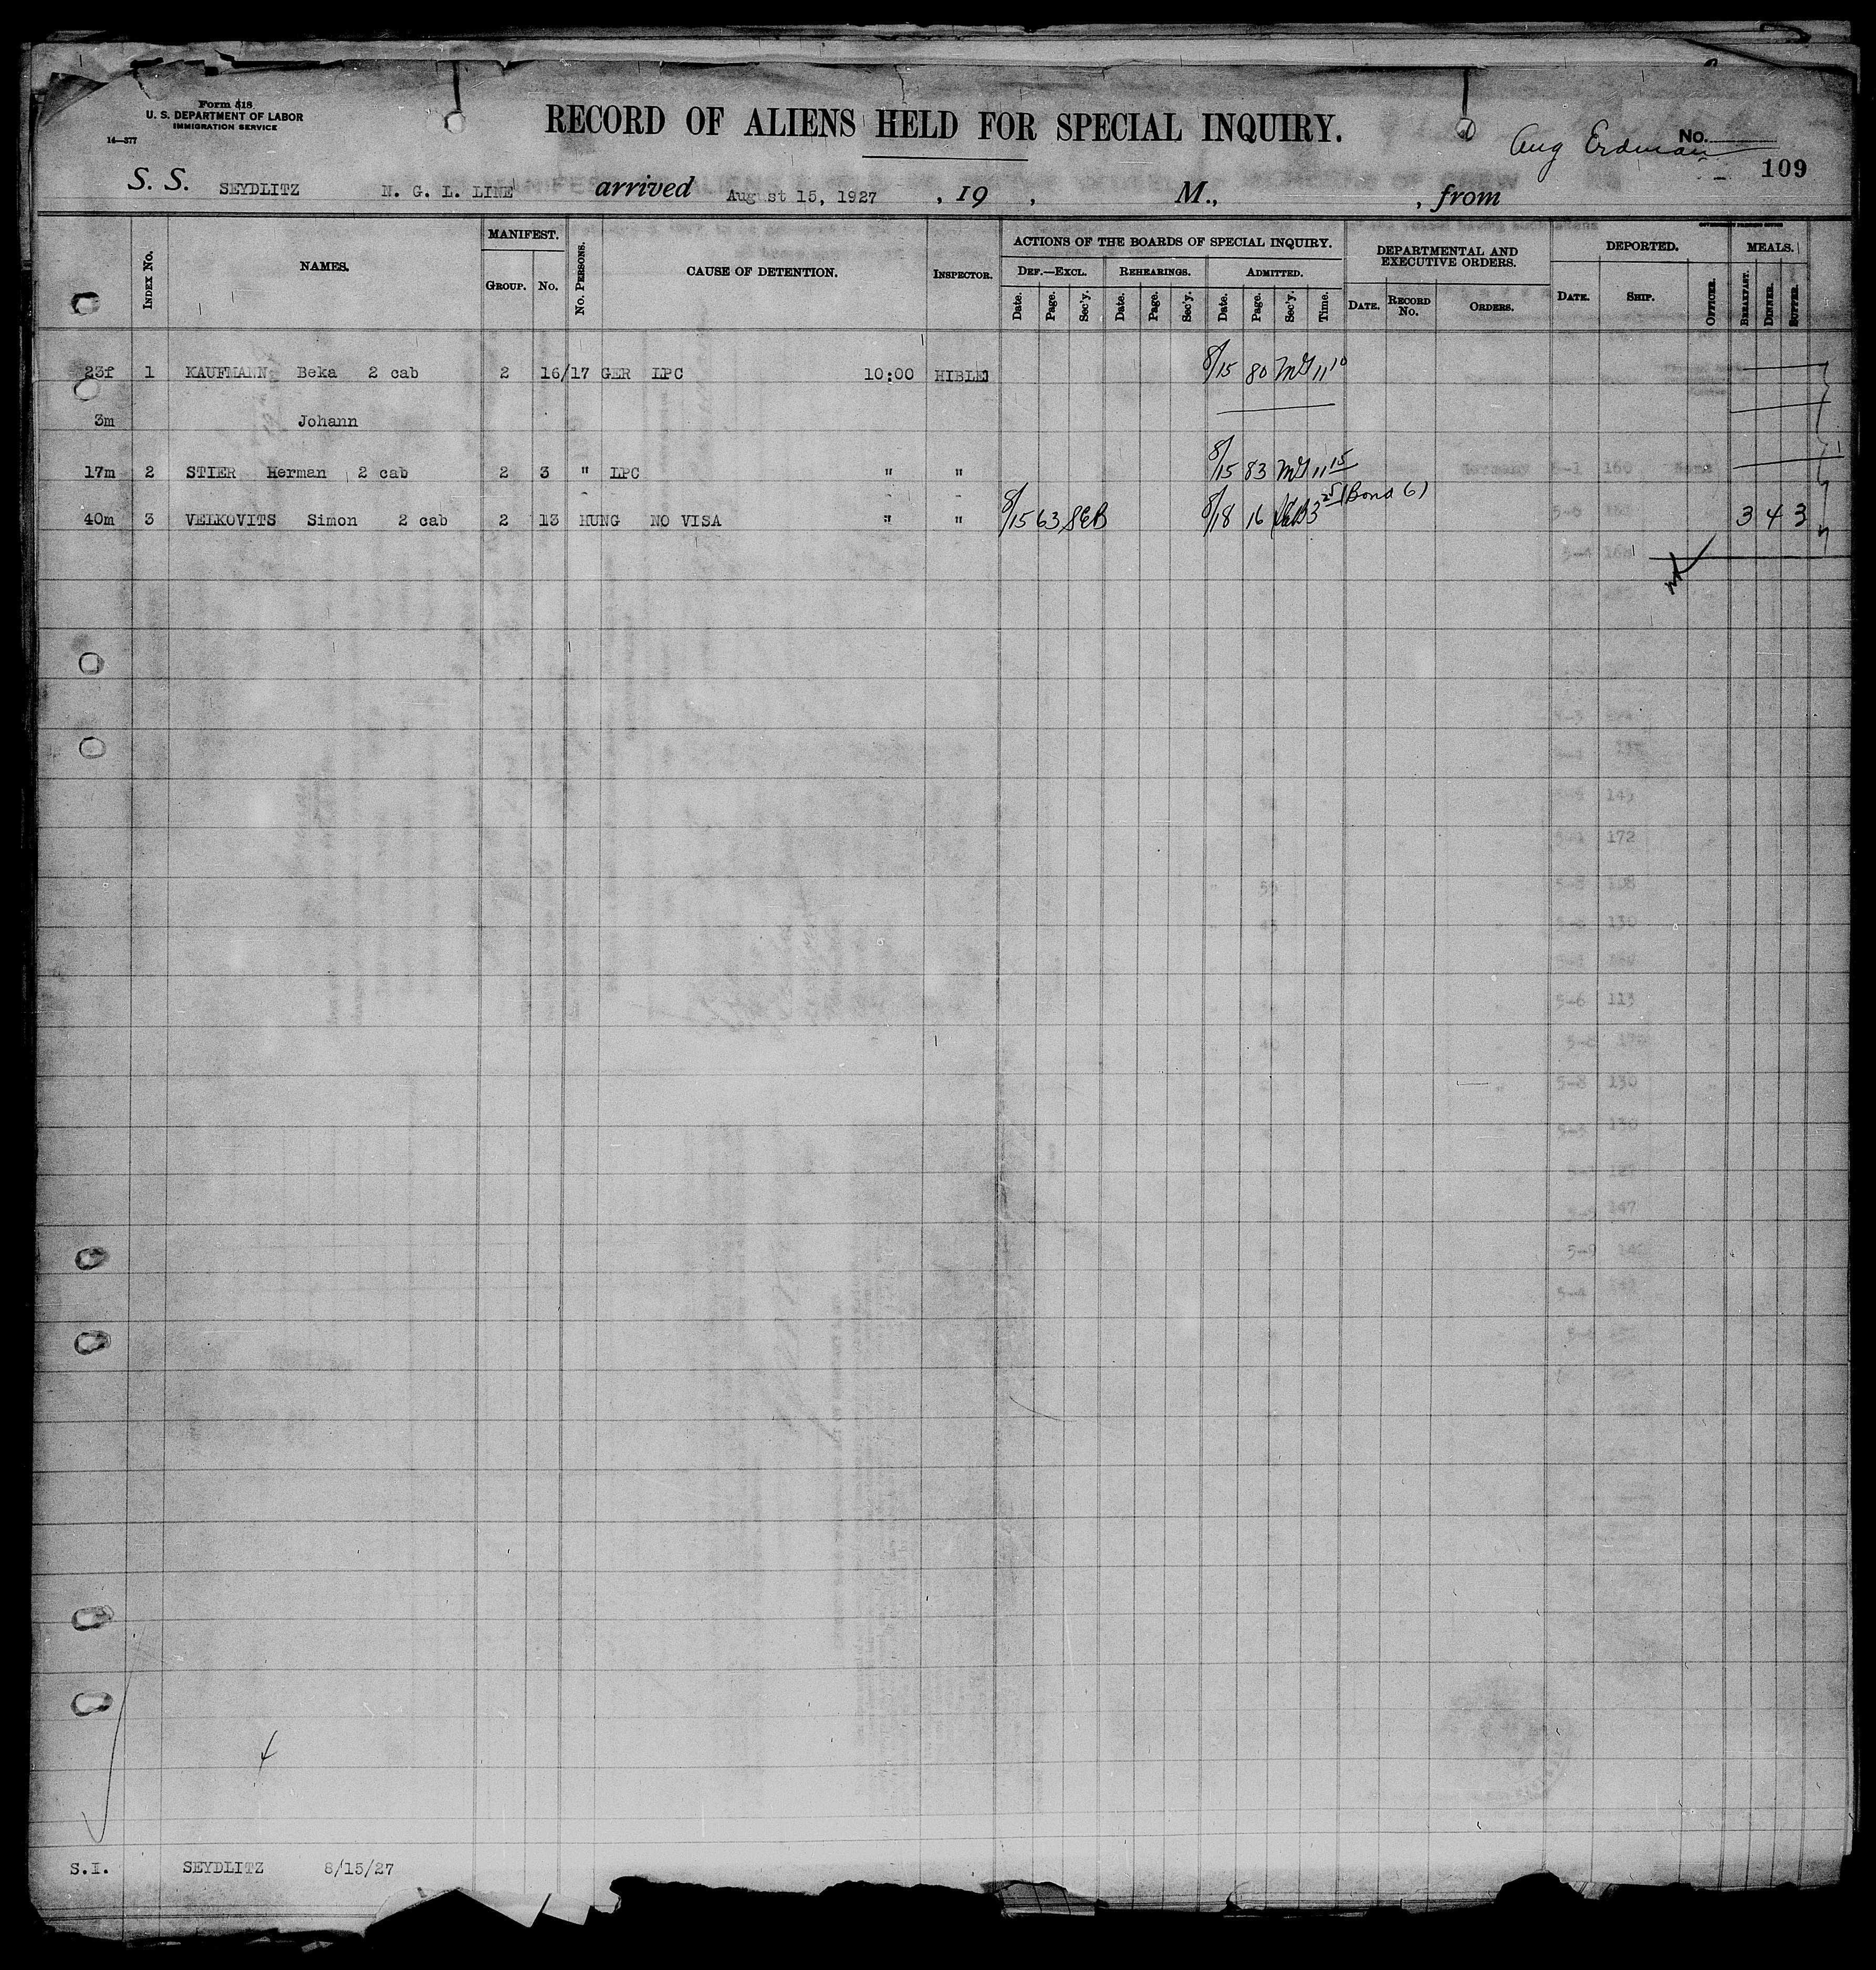 Form 618
U. S. DEPARTMENT OF LABOR
IMMIGRATION SERVICE
14—377
RECORD OF ALIENS HELD FOR SPECIAL INQUIRY.
Aug Erdman
No.
109
S. S. SEYDLITZ N. G. L. LINE arrived August 15, 1927 , 19 , M., , from
GOVERNMENT PRINTING OFFICE
INDEX No. NAMES. MANIFEST. GROUP. No. No. PERSONS. CAUSE OF DETENTION. INSPECTOR.
ACTIONS OF THE BOARDS OF SPECIAL INQUIRY.
DEF.—EXCL. REHEARINGS. ADMITTED.
Date. Page. Sec'y. Date. Page. Sec'y. Date. Page. Sec'y. Time.
DEPARTMENTAL AND EXECUTIVE ORDERS.
DATE. RECORD No. ORDERS.
DEPORTED.
DATE. SHIP. OFFICER.
MEALS.
BREAKFAST. DINNER. SUPPER.
23f 1 KAUFMANN Beka 2 cab 2 16/17 GER LPC 10:00 HIBLE 8/15 80 11 10
3m Johann
17m 2 STIER Herman 2 cab 2 3 " LPC " " 8/15 83 11 15
40m 3 VELKOVITS Simon 2 cab 2 13 HUNG NO VISA " " 8/15 63 SEB 8/18 16 SEB 3 25 (Bond 6) 3 4 3
S.I. SEYDLITZ 8/15/27